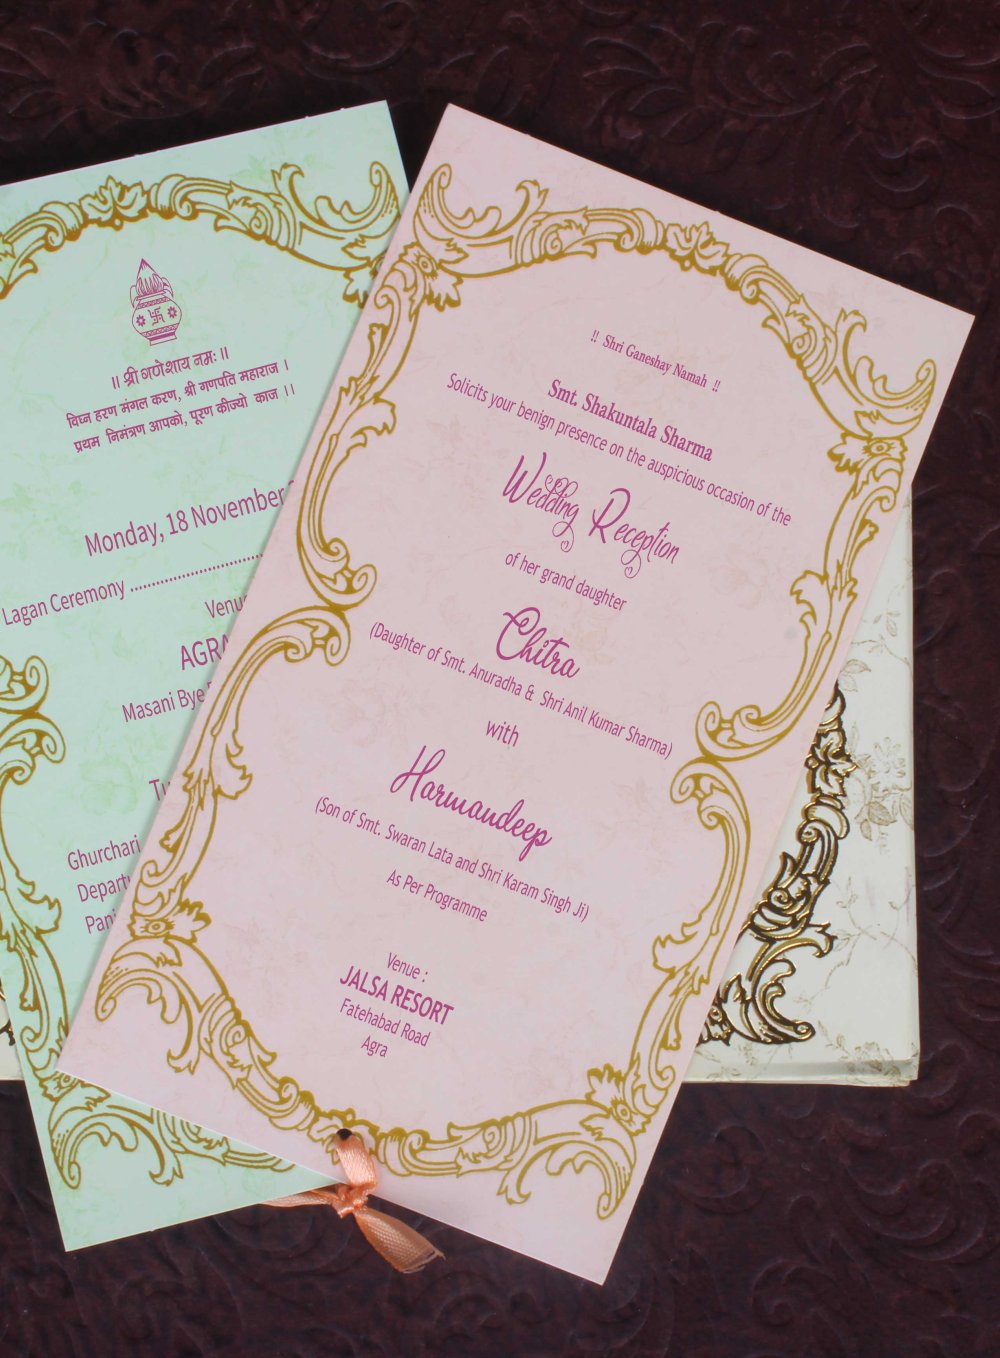 ॥ श्री गणेशाय नमः ॥
विघ्न हरण मंगल करण, श्री गणपति महाराज ।
प्रथम निमंत्रण आपको, पूरण कीज्यो काज ।।
Monday, 18 November
Lagan Ceremony ..............................
Venue
AGRA
Masani Bye
Ghurchari
!! Shri Ganeshay Namah !!
Smt. Shakuntala Sharma
Solicits your benign presence on the auspicious occasion of the
Wedding Reception
of her grand daughter
Chitra
(Daughter of Smt. Anuradha & Shri Anil Kumar Sharma)
with
Harmandeep
(Son of Smt. Swaran Lata and Shri Karam Singh Ji)
As Per Programme
Venue :
JALSA RESORT
Fatehabad Road
Agra